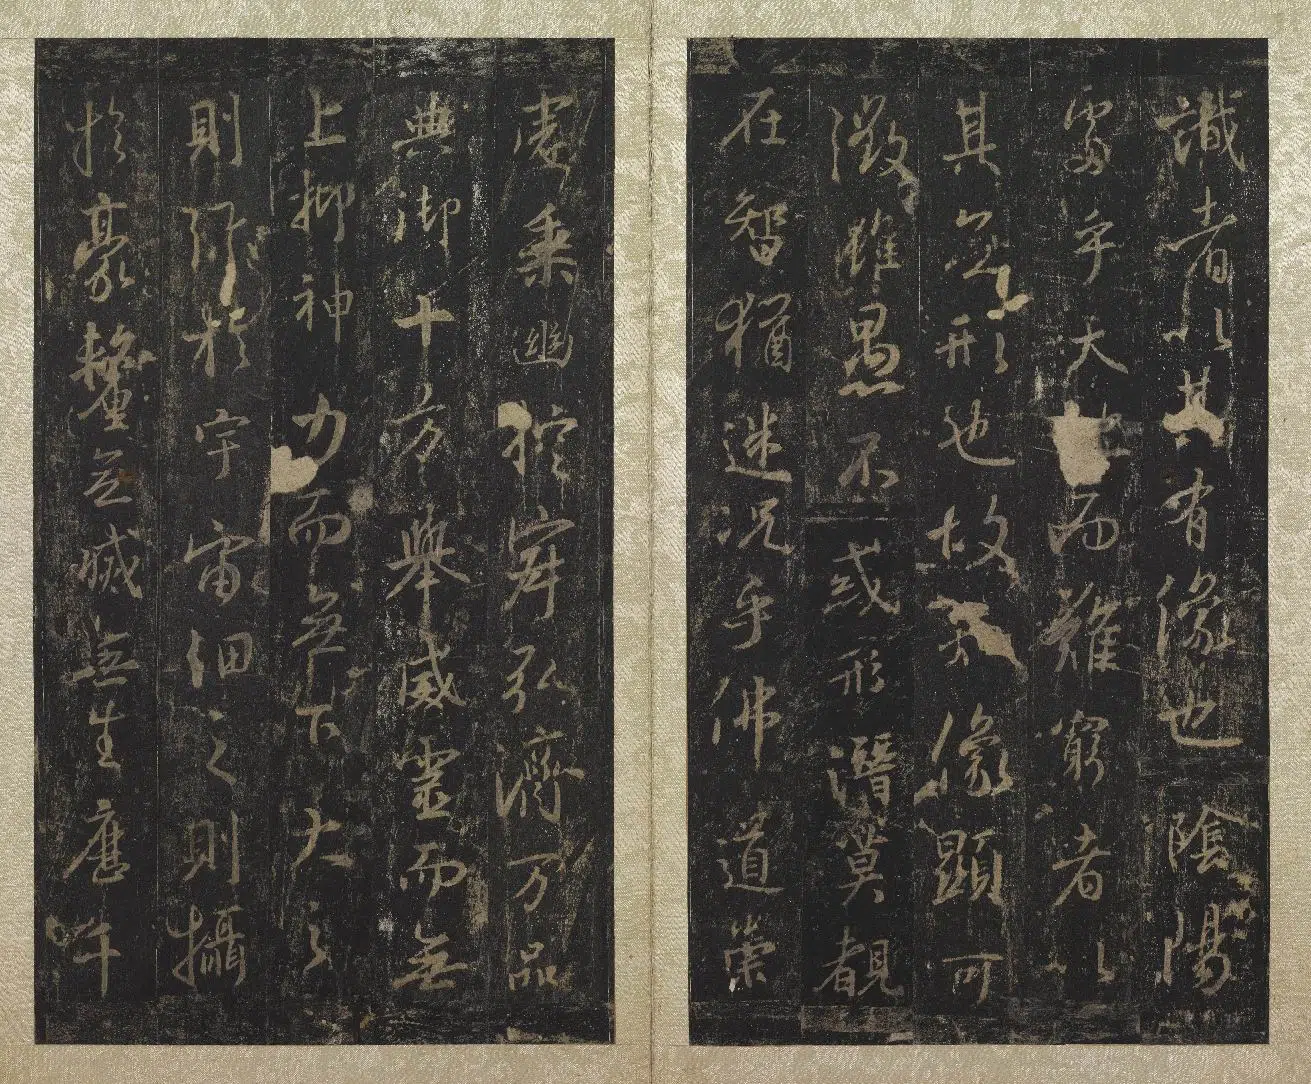 識者以其有像也陰陽
處乎天地而難窮者以
其無形也故知像顯可
徵雖愚不惑形潛莫覩
在智猶迷況乎佛道崇
虛乘幽控寂弘濟万品
典御十方舉威靈而無
上抑神力而無下大之
則弥於宇宙細之則攝
於豪釐無滅無生歷千